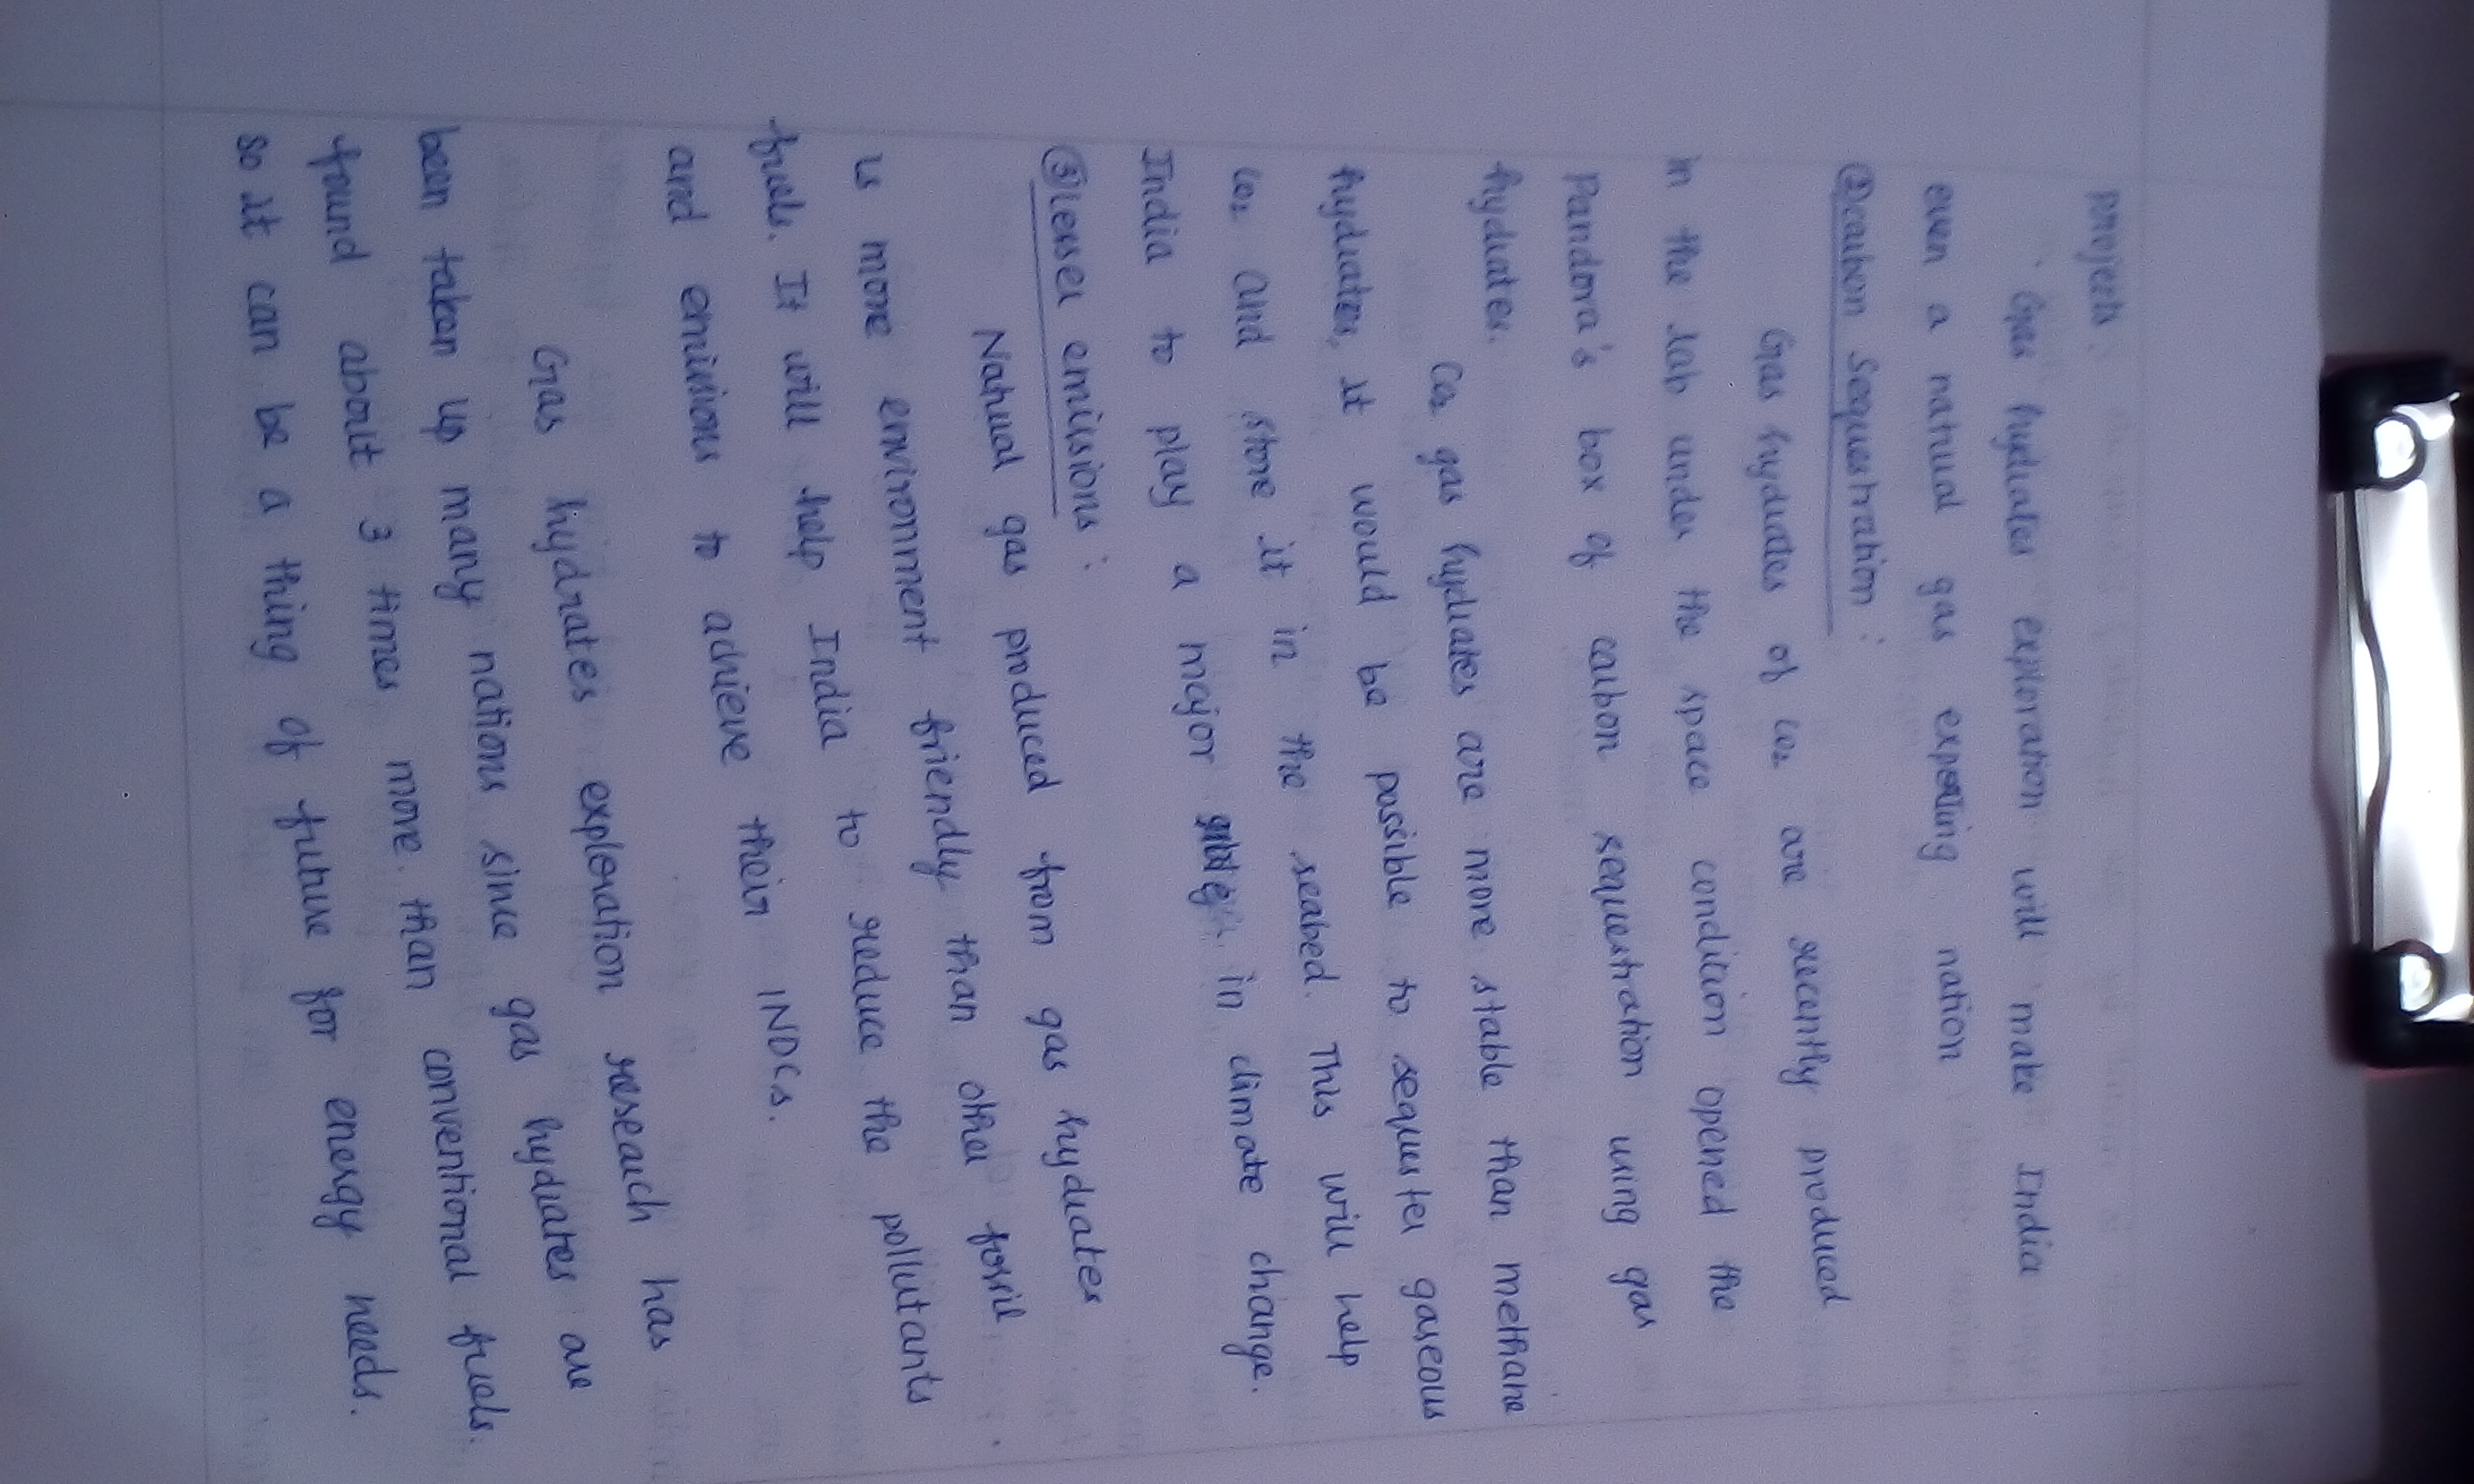 projects.
Gas hydrates exploration will make India
even a natural gas exporting nation
② Carbon Sequestration:
Gas hydrates of CO2 are recently produced
in the lab under the space condition opened the
Pandora's box of carbon sequestration using gas
hydrates.
CO2 gas hydrates are more stable than methane
hydrates, it would be possible to sequester gaseous
CO2 and store it in the seabed. This will help
India to play a major in climate change.
③ lesser emissions:
Natural gas produced from gas hydrates
is more environment friendly than other fossil
fuels. It will help India to reduce the pollutants
and emissions to achieve their INDCs.
Gas hydrates exploration reseach has
been taken up many nations since gas hydrates are
found about 3 times more than conventional fuels.
so it can be a thing of future for energy needs.